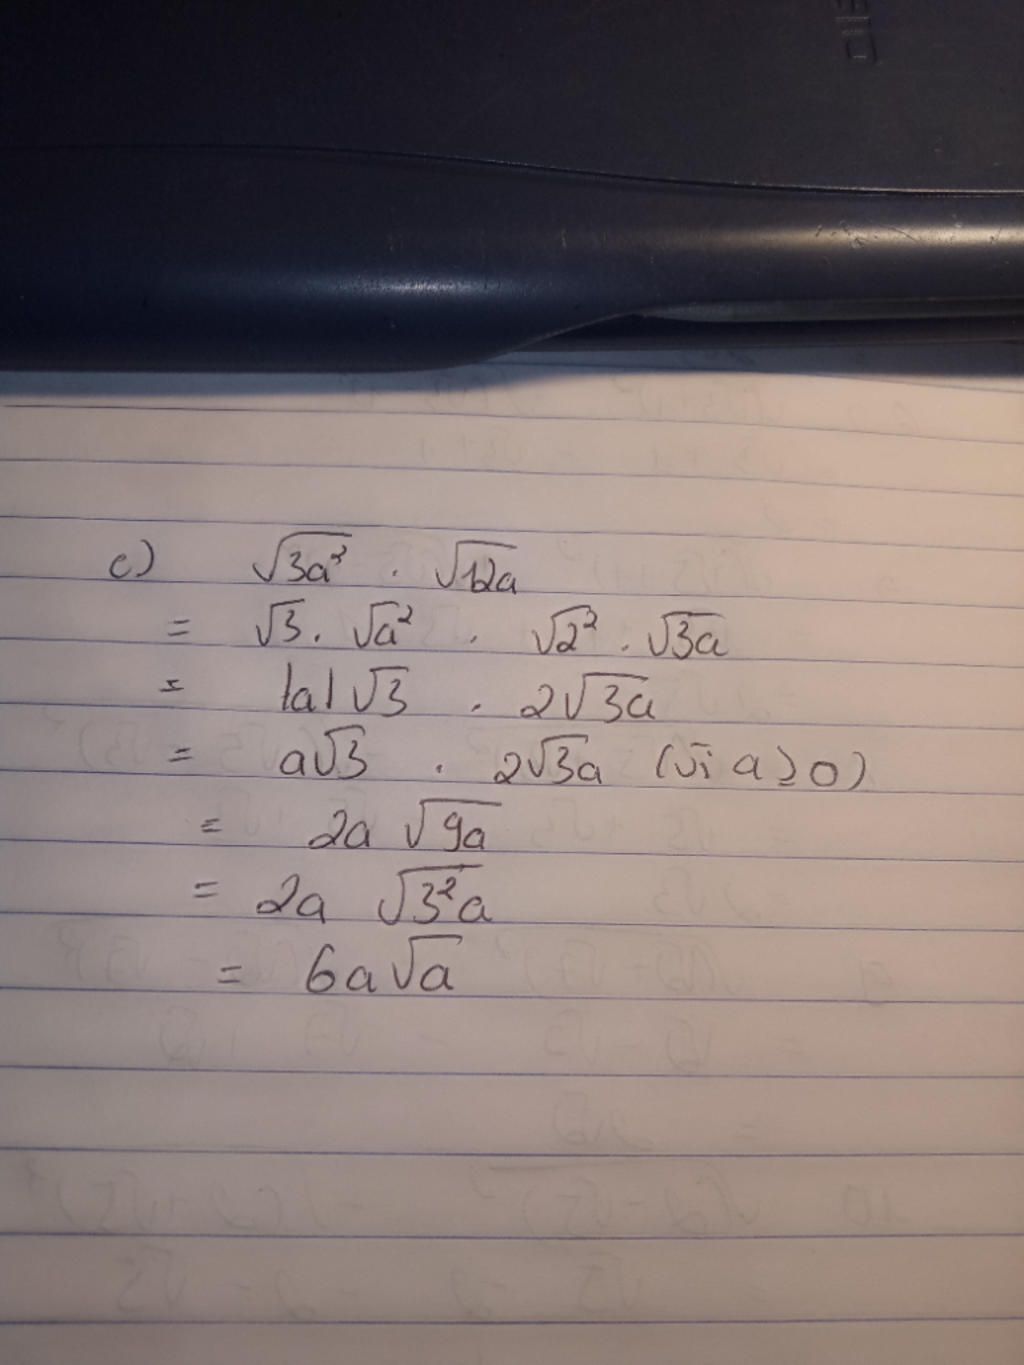 c) √3a³ · √12a
= √3 · √a² · √2² · √3a
= |a|√3 · 2√3a
= a√3 · 2√3a (vì a ≥ 0)
= 2a √9a
= 2a √3²a
= 6a√a